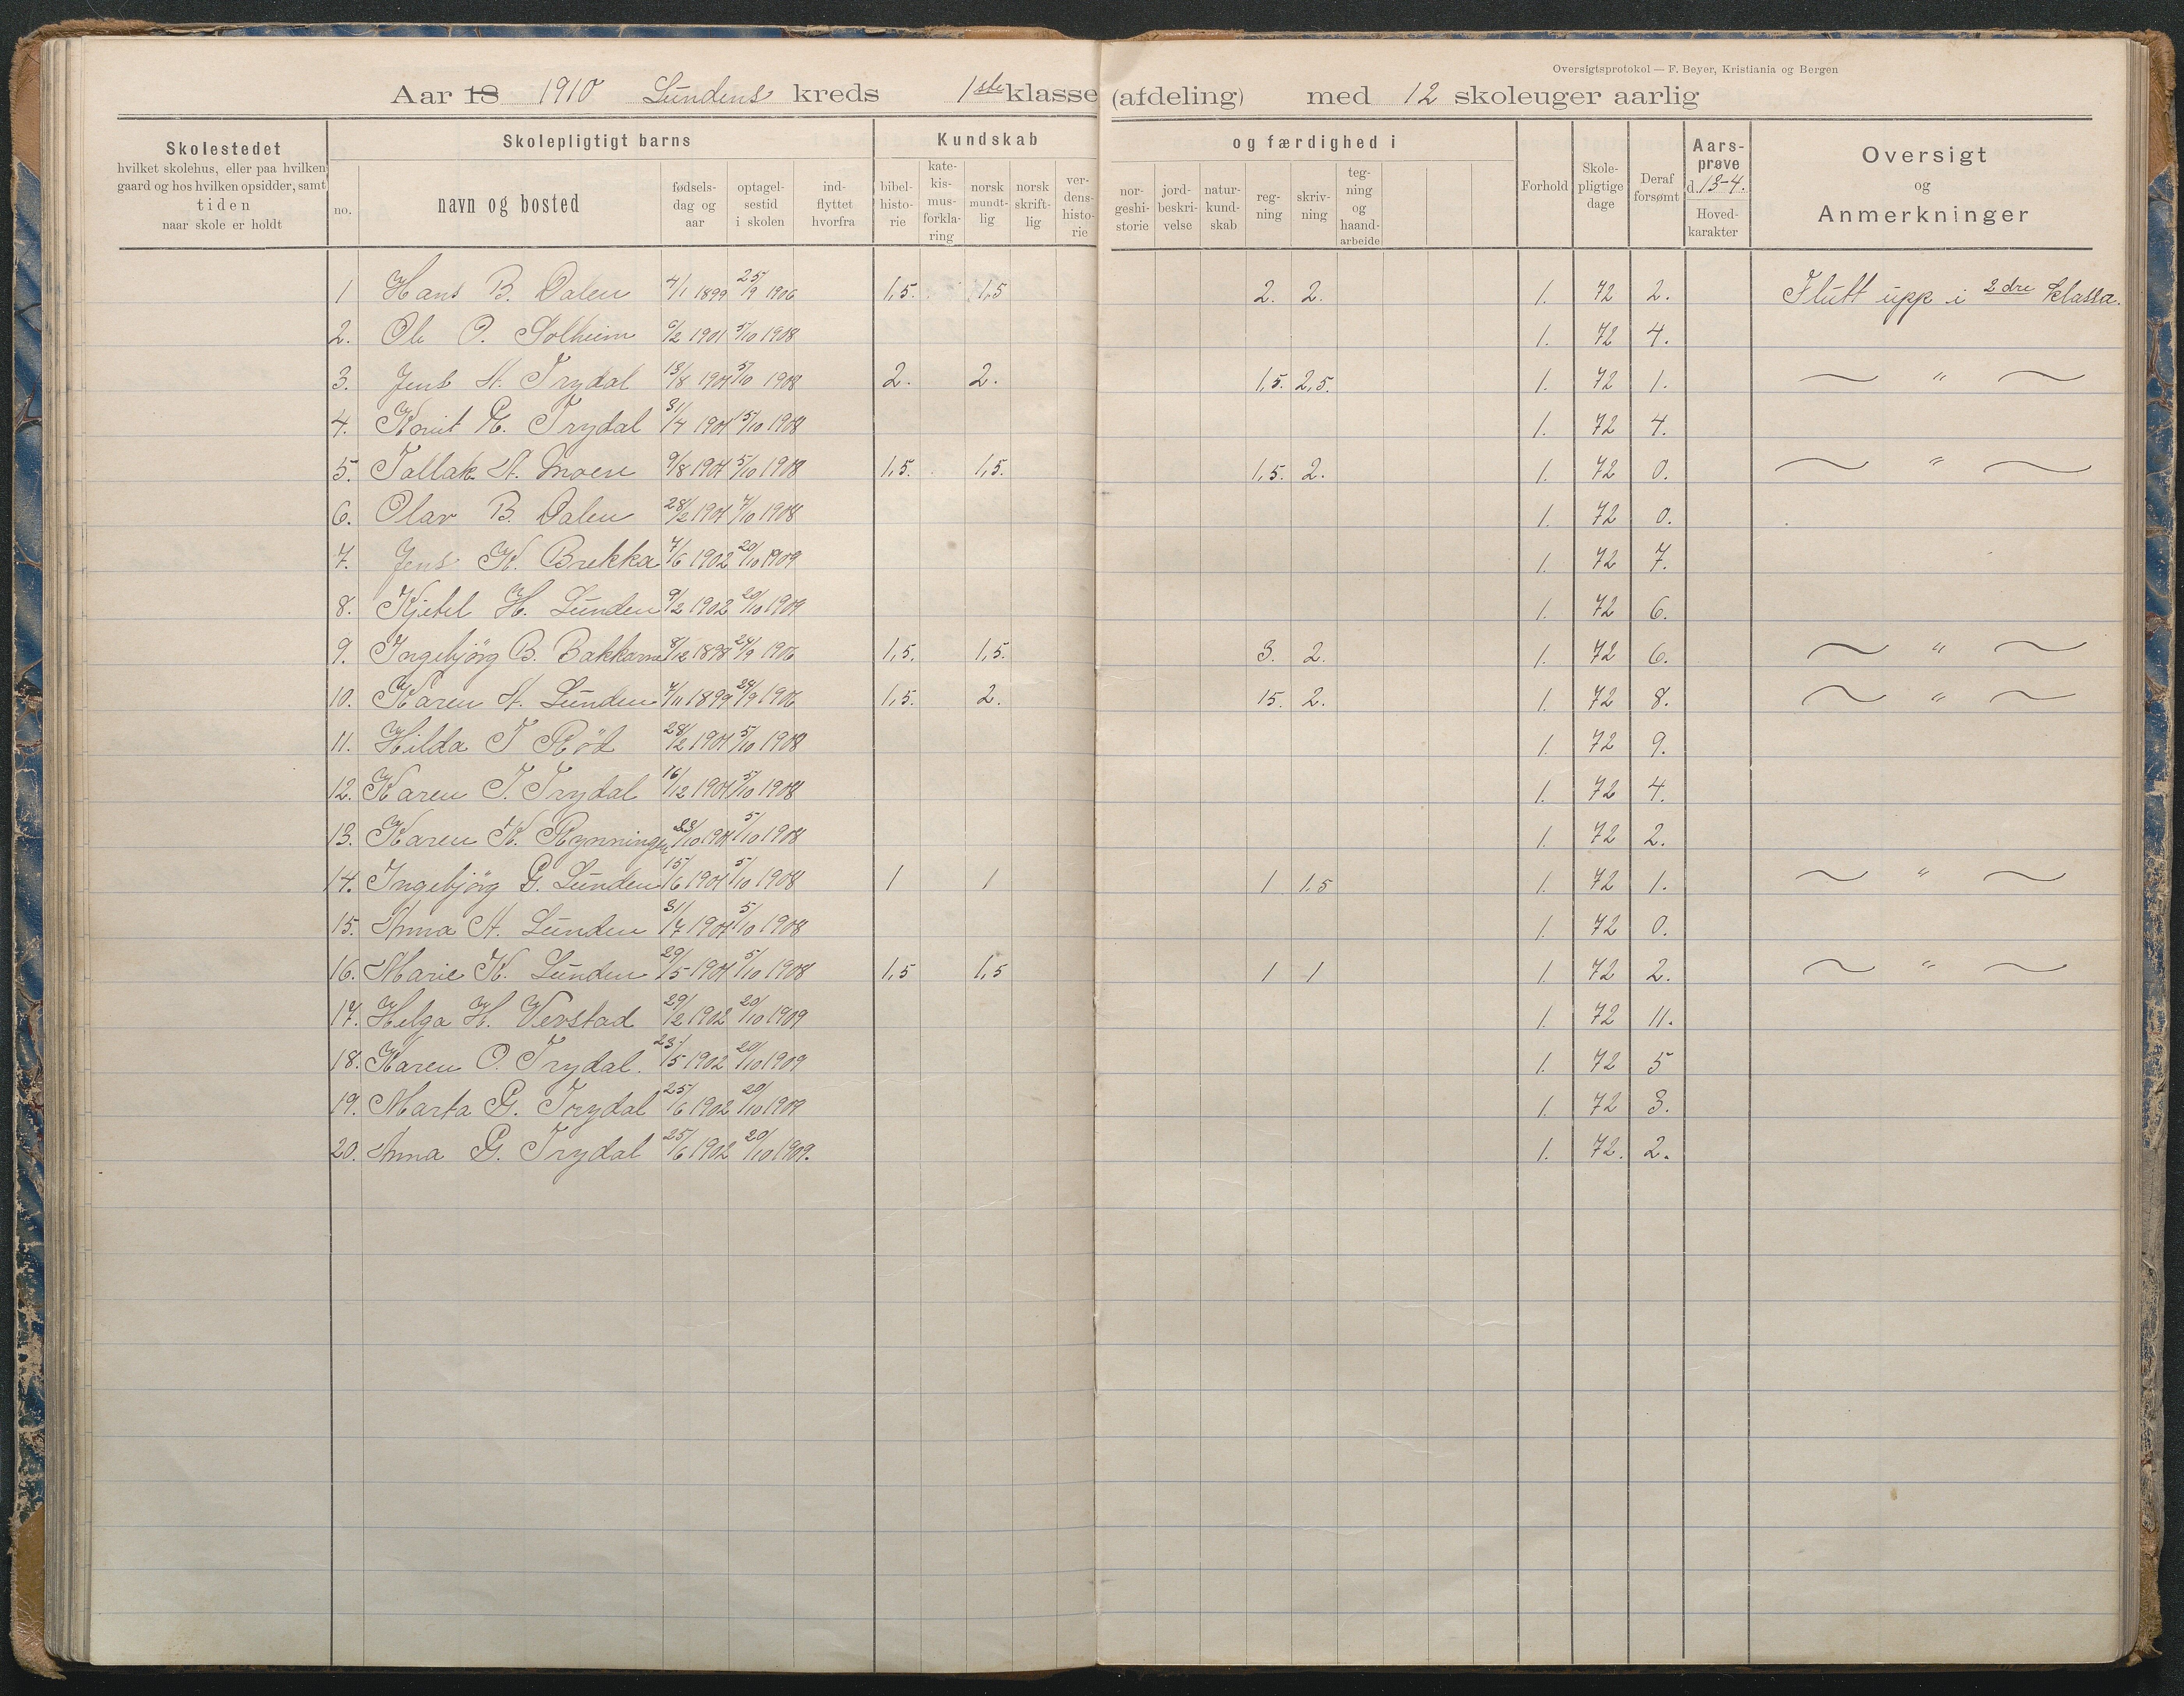 Oversigtsprotokol — F. Beyer, Kristiania og Bergen
Aar 18 1910 Lundens kreds 1ste klasse (afdeling) med 12 skoleuger aarlig
Skolestedet hvilket skolehus, eller paa hvilken gaard og hos hvilken opsidder, samt tiden naar skole er holdt
Skolepligtigt barns
no. navn og bosted fødsels-dag og aar optagel-sestid i skolen ind-flyttet hvorfra
Kundskab og færdighed i
bibel-histo-rie kate-kis-mus-forkla-ring norsk mundt-lig norsk skrift-lig ver-dens-histo-rie nor-geshi-storie jord-beskri-velse natur-kund-skab reg-ning skriv-ning teg-ning og haand-arbeide
Forhold Skole-pligtige dage Deraf forsømt Aars-prøve d. 13-4. Hoved-karakter
Oversigt og Anmerkninger
1 Hans B. Dalen 4/1 1899 25/9 1906 1,5. 1,5 2. 2. 1. 72 2. Flutt upp i 2dre klassa.
2. Ole O. Solheim 6/2 1901 5/10 1908 1. 72 4.
3. Jens A. Trydal 13/8 1901 5/10 1908 2. 2. 1,5. 2,5. 1. 72 1. 〃
4. Knut G. Trydal 31/7 1901 5/10 1908 1. 72 4.
5. Tallak A. Moen 9/8 1901 5/10 1908 1,5. 1,5. 1,5. 2. 1. 72 0. 〃
6. Olav B. Dalen 28/2 1901 7/10 1908 1. 72 0.
7. Jens K. Brekka 7/6 1902 20/10 1909 1. 72 7.
8. Kjetel H. Lunden 9/2 1902 20/10 1909 1. 72 6.
9. Ingebjörg B. Bakkane 8/12 1898 24/9 1906 1,5. 1,5. 3. 2. 1. 72 6. 〃
10. Karen A. Lunden 7/11 1899 24/9 1906 1,5. 2. 15. 2. 1. 72 8. 〃
11. Hilda T Röd 28/2 1901 5/10 1908 1. 72 9.
12. Karen T. Trydal 16/12 1901 5/10 1908 1. 72 4.
13. Karen K. Rynningen /10 1901 5/10 1908 1. 72 2.
14. Ingebjörg G. Lunden 15/6 1901 5/10 1908 1 1 1 1.5 1. 72 1. 〃
15. Anna A. Lunden 31/7 1901 5/10 1908 1. 72 0.
16. Marie K. Lunden 29/5 1901 5/10 1908 1,5 1,5 1 1 1. 72 2. 〃
17. Helga H. Verstad 29/2 1902 20/10 1909 1. 72 11.
18. Karen O. Trydal. 23/5 1902 20/10 1909 1. 72 5
19. Marta G. Trydal 25/6 1902 20/10 1909 1. 72 3.
20. Anna G. Trydal 25/6 1902 20/10 1909. 1. 72. 2.